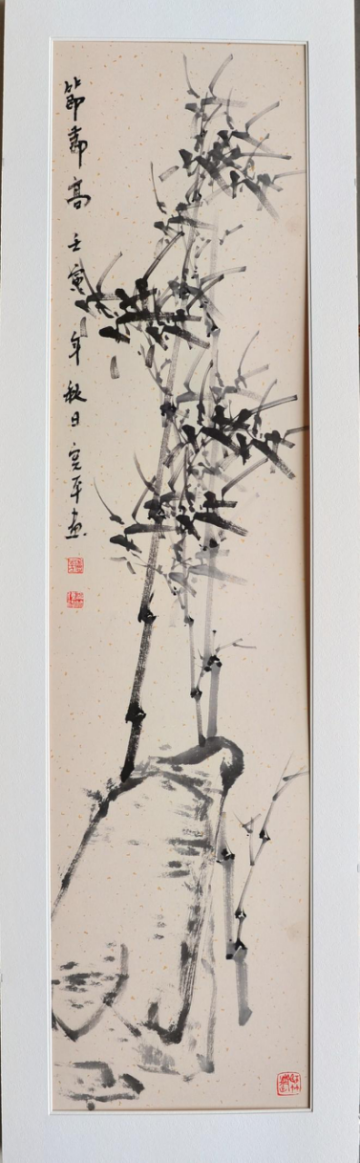 節節高 壬寅年秋日 平画